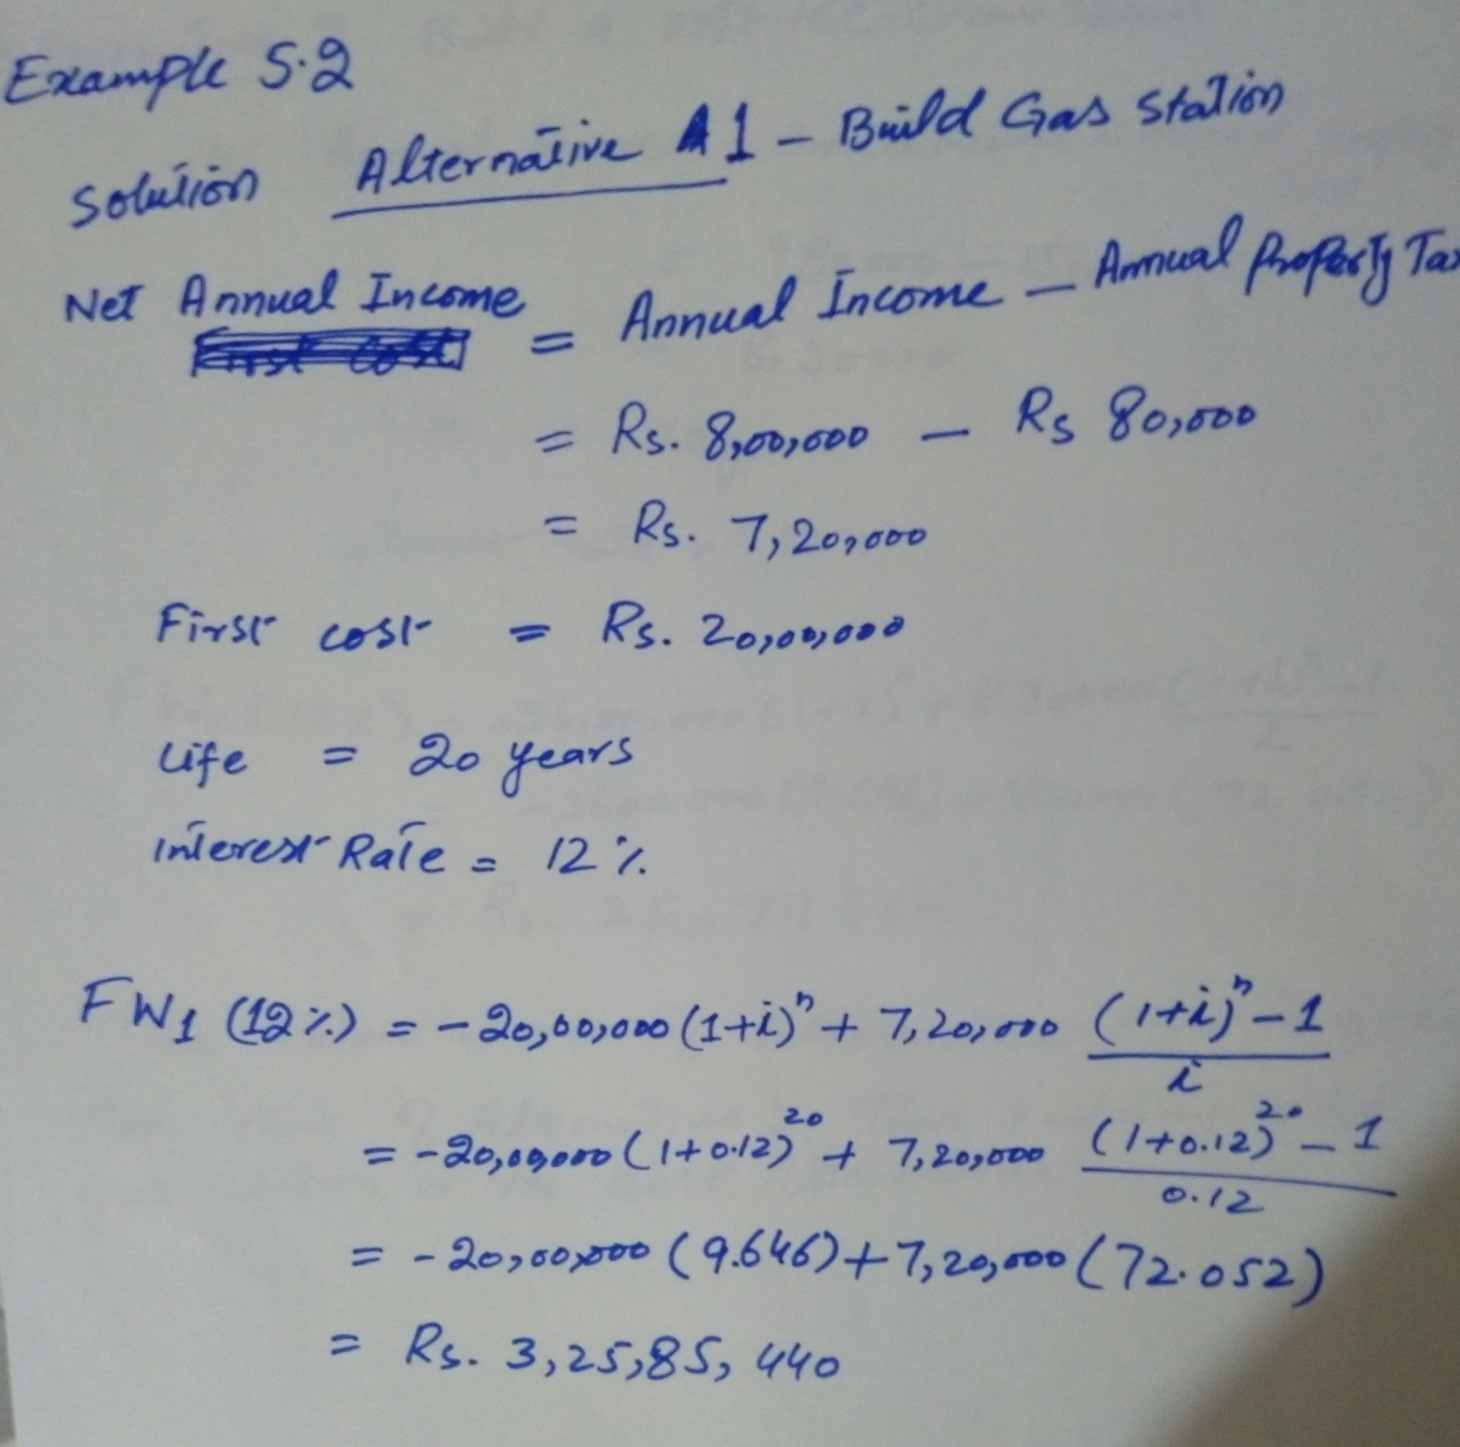 Example 5.2
Solution Alternative 1 - Build Gas Station
Net Annual Income = Annual Income - Annual Property Tax
First Cost
= Rs. 8,00,000 - Rs 80,000
= Rs. 7,20,000
First cost = Rs. 20,00,000
Life = 20 years
Interest Rate = 12 %
FW1 (12%) = -20,00,000 (1+i)^n + 7,20,000 ((1+i)^n - 1) / i
= -20,00,000 (1+0.12)^20 + 7,20,000 ((1+0.12)^20 - 1) / 0.12
= -20,00,000 (9.646) + 7,20,000 (72.052)
= Rs. 3,25,85,440